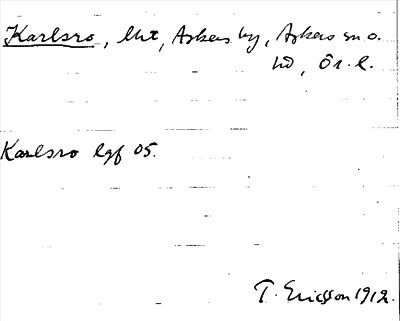 Karlsro, lht, Askers by, Askers sn o.
hd, Ör. l.
Karlsro lgf 05.
T. Ericsson 1912.